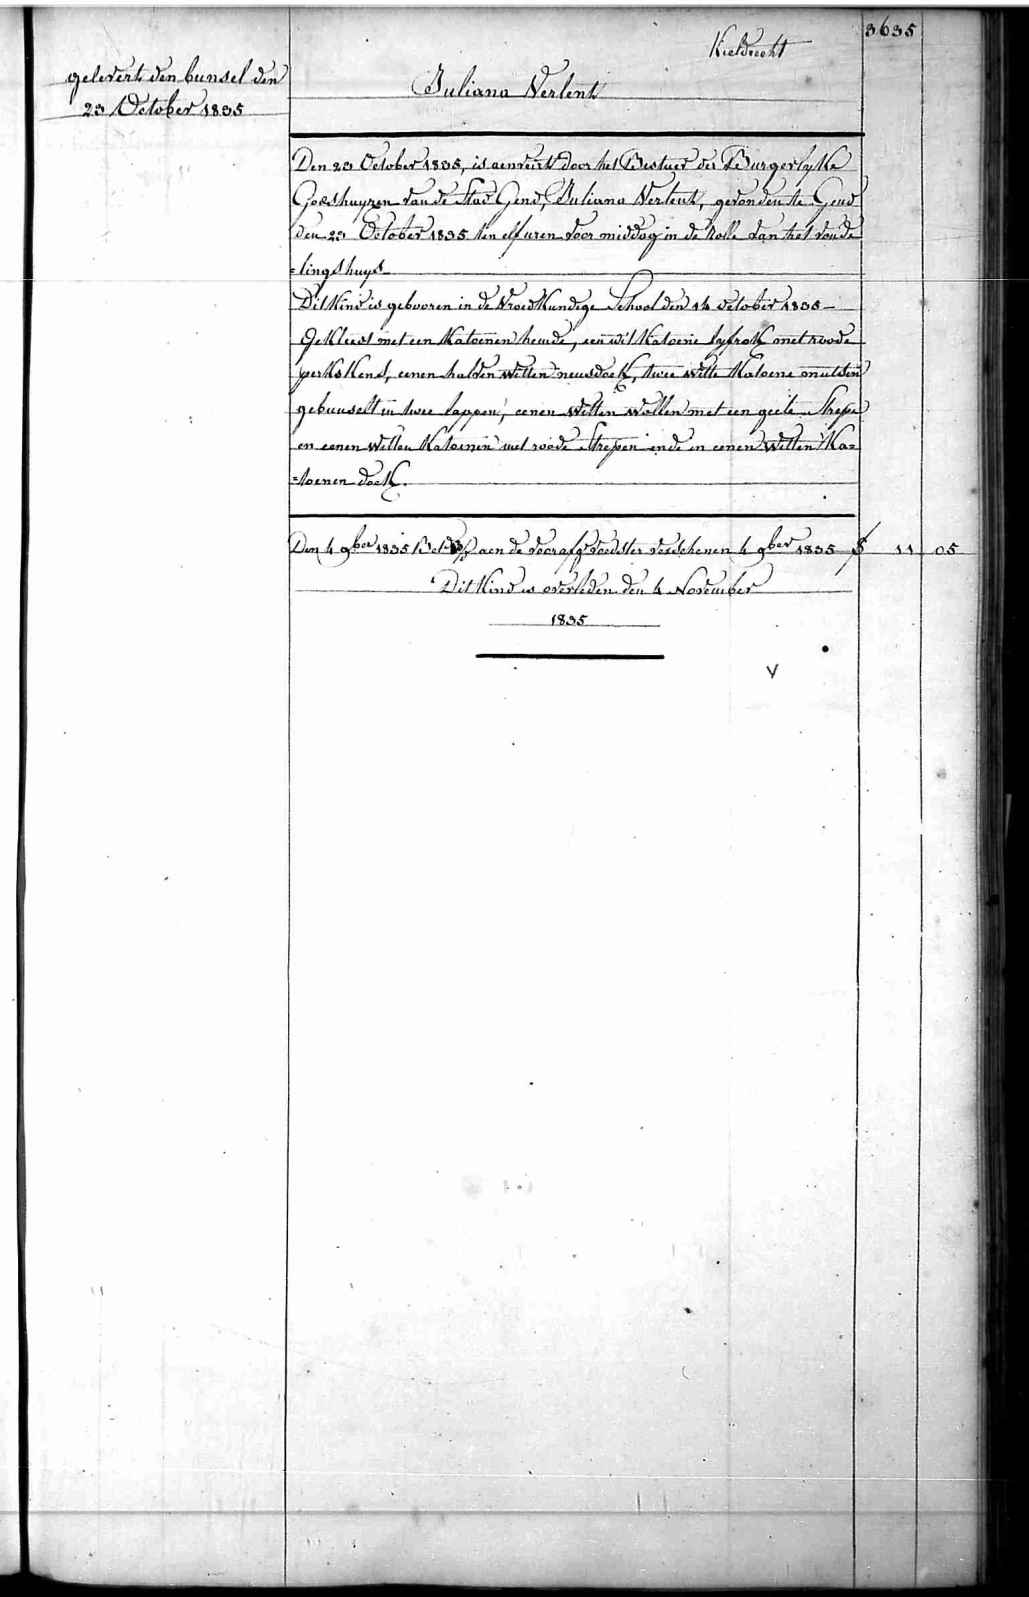 3635
Kieldrecht
gelevert den bunsel den
23 October 1835
Juliana Verlent
Den 23 October 1835, is aenveirt door het Bestuer der Burgerlyke
Godshuyzen van de Stad Gend, Juliana Verlent, gevonden te Gend
den 23 October 1835 ten elf uren voor middag in de Rolle van het vonde
=lingshuys
Dit Kind is gebooren in de Vroedkundige School den 14 october 1835 -
Gekleed met een Katoenen hemde, een wit Katoene lyfrok met roode
perkskens, eenen halven witten neusdoek, twee witte Katoene mutsen
gebunselt in twee lappen, eenen witten wollen met een geele Strepe
en eenen witten Katoenen met roode Strepen ende in eenen witten Ka=
=toenen doek.
Den 4 9ber 1835 aen de voedster verschenen 4 9ber 1835 11 05
Dit Kind is overleden den 4 November
1835
V